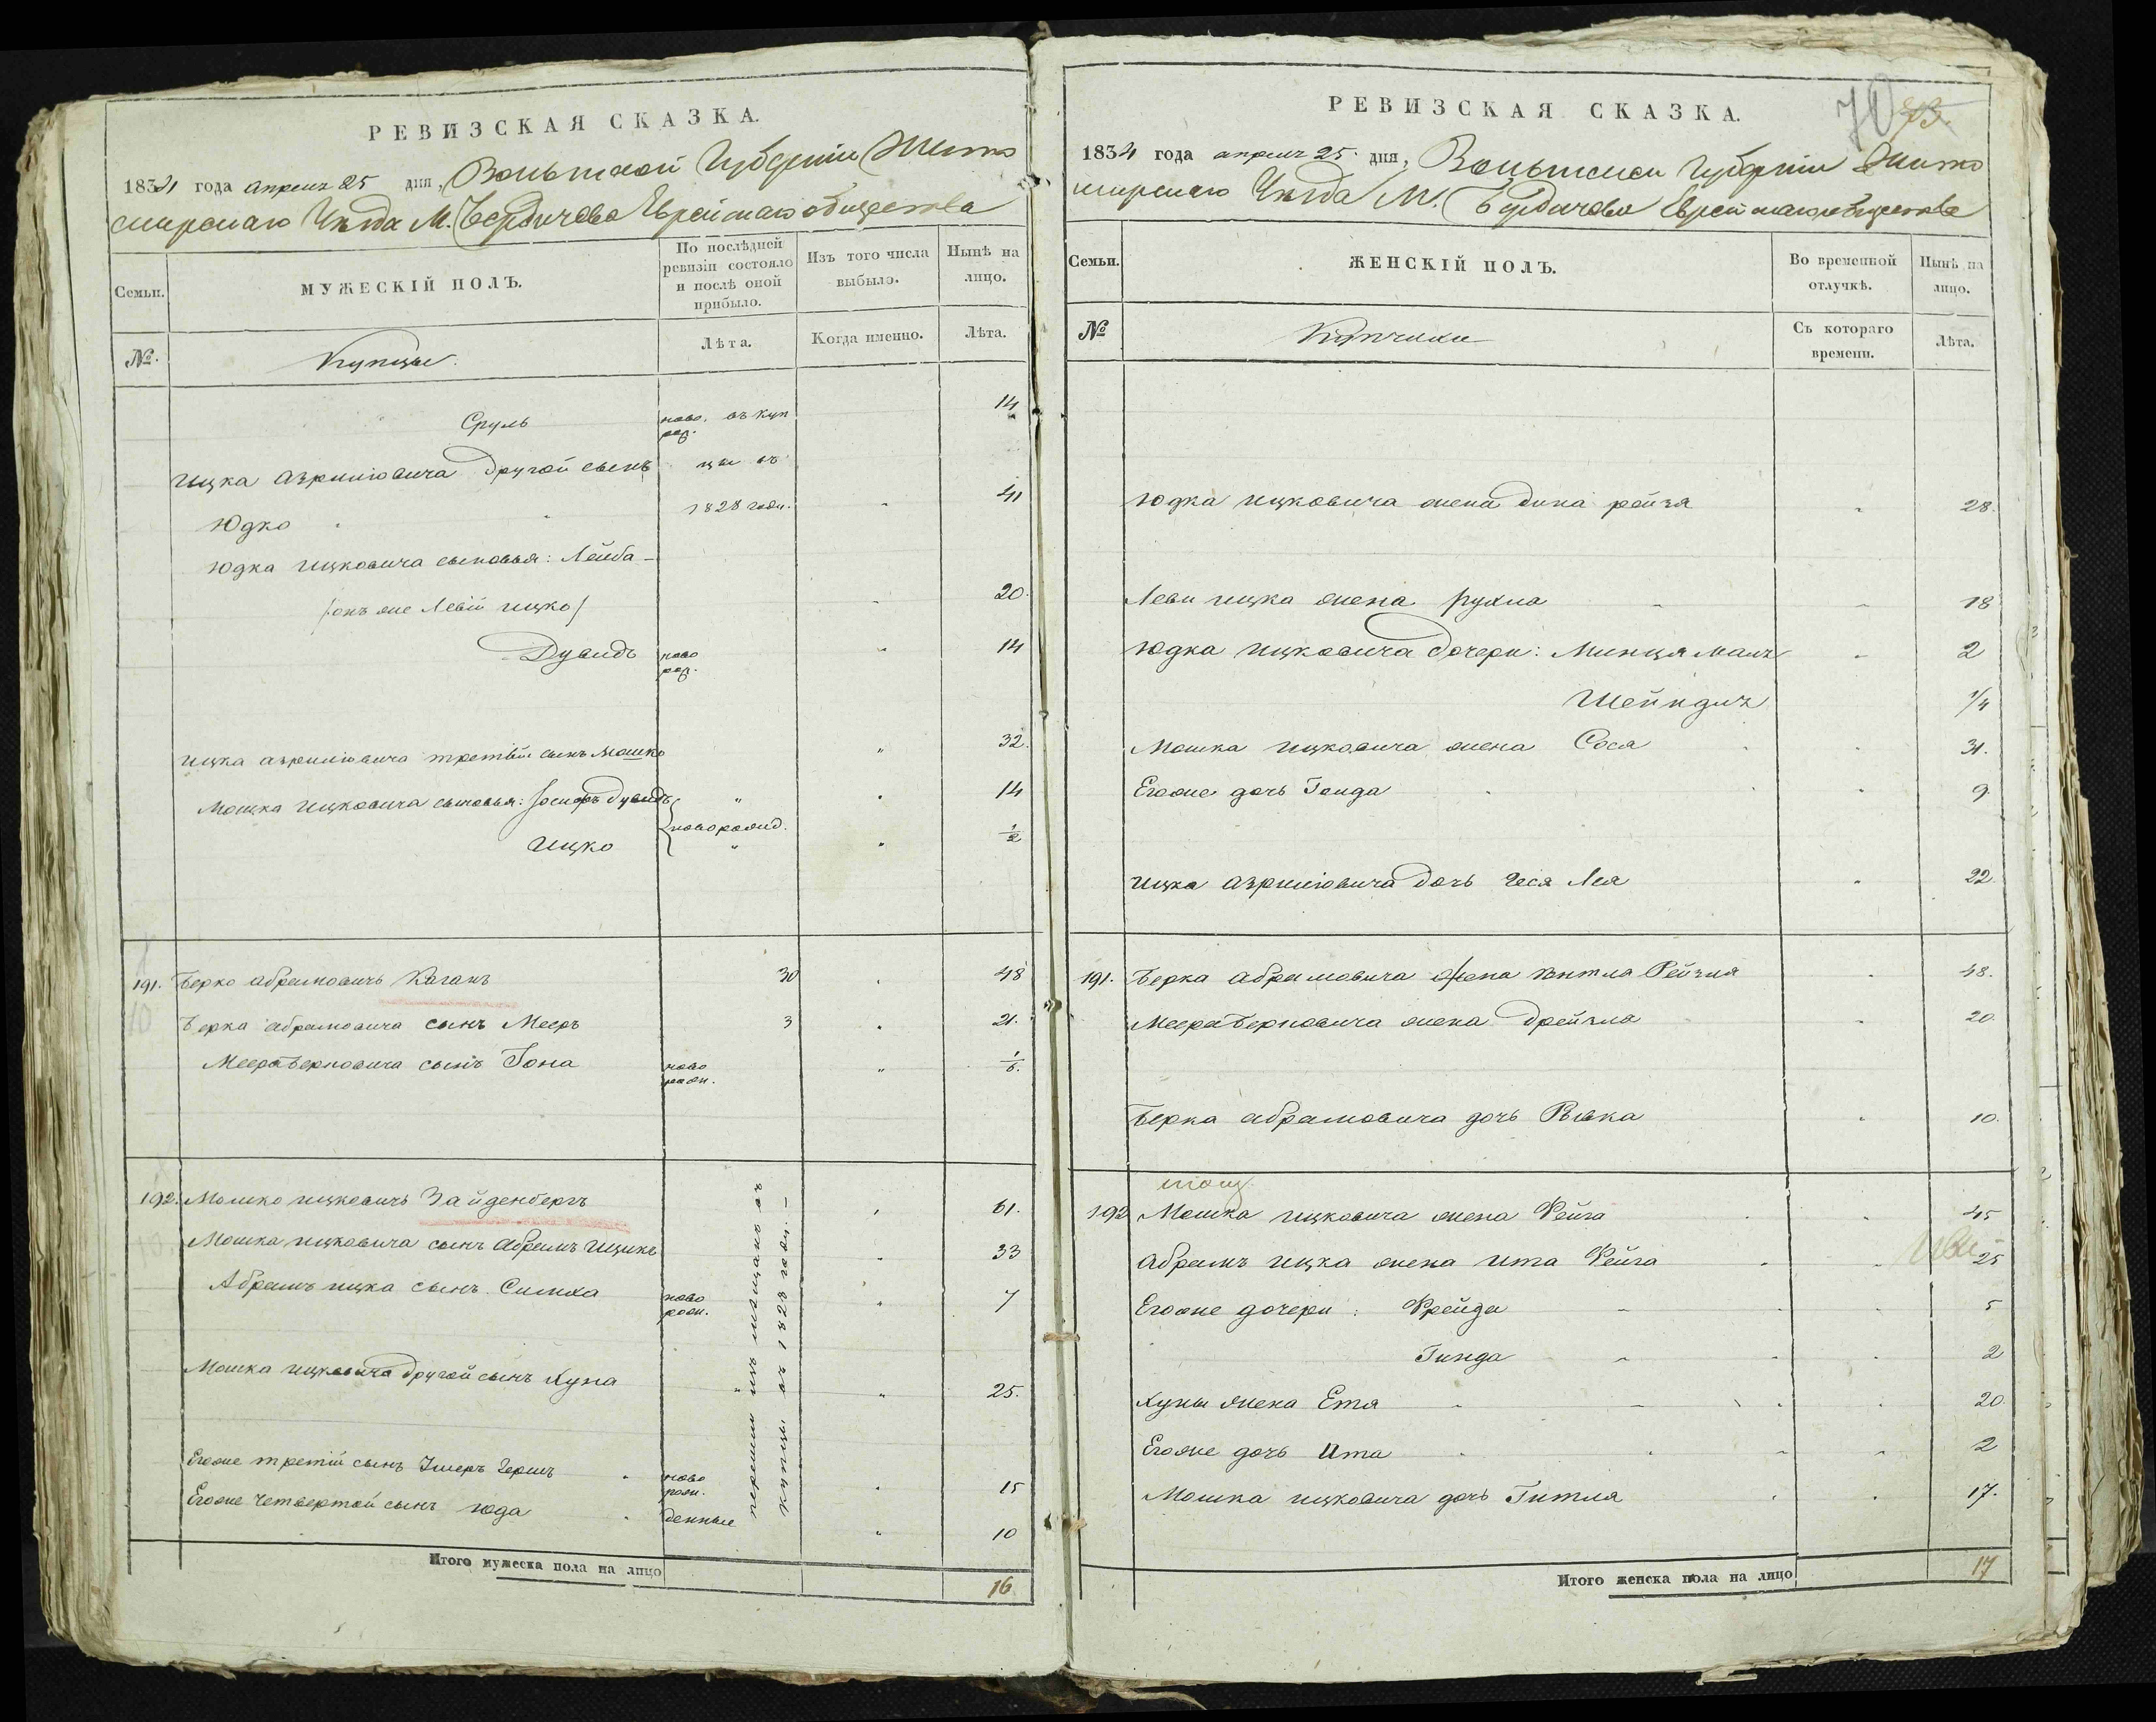 РЕВИЗСКАЯ СКАЗКА.
1834 года апреля 25 дня, Волынской Губернии Жито
мирскаго Уѣзда М. Бердичева Еврейскаго общества
Семьи. МУЖЕСКІЙ ПОЛЪ. По послѣдней ревизіи состояло и послѣ оной прибыло. Изъ того числа выбыло. Нынѣ на лицо.
№. Купцы. Лѣта. Когда именно. Лѣта.
Сруль ново. въ куп 14
рож.
Ицка Азрилiовича другой сынъ цы въ
Юдко " " 1828 году. " 41
Юдка Ицковича сыновья: Лейба –
/онъ же Левій Ицко/ " 20.
Дувидъ ново рож. " 14
Ицка Азрилiовича третьій сынъ Мошко " 32.
Мошка Ицковича сыновья: Іосифъ Дувидъ " " 14
новорожд.
Ицко " " 1/2
191. Берко Абрамовичъ Каганъ 30 " 48
10 Берка Абрамовича сынъ Мееръ 3 " 21.
Меера Берковича сынъ Іона ново рожд. " 1/6.
192. Мошко Ицковичъ Зайденбергъ " 61.
Мошка Ицковича сынъ Абрамъ Ицикъ " 33
Абрамъ Ицка сынъ Симха ново рожд. " 7
Мошка Ицковича другой сынъ Хуна " " 25.
Егоже третій сынъ Шмеръ Гершъ " ново рож. " 15
Егоже четвертой сынъ Юда " денные " 10
перешли изъ мѣщанъ въ
купцы въ 1828 году. –
Итого мужеска пола на лицо 16
РЕВИЗСКАЯ СКАЗКА.
70 73
1834 года апреля 25 дня, Волынской Губерніи Жито
мирскаго Уѣзда М. Бердичева Еврейскаго общества
Семьи. ЖЕНСКІЙ ПОЛЪ. Во временной отлучкѣ. Нынѣ на лицо.
№ Купчихи Съ котораго времени. Лѣта.
Юдка Ицковича жена Дина Рейзя " 28.
Леви Ицка жена Рухла " " 18
Юдка Ицковича дочери: Минця Малъ " 2
Шейндлъ 1/4
Мошка Ицковича жена Сося " " 31.
Егоже дочь Гонда " " 9
Ицка Азрилiовича дочь Геся Лея " 22.
191. Берка Абрамовича жена Ентла Рейзля " 48.
Меера Берковича жена Дрейзла " 20.
Берка Абрамовича дочь Ривка " 10.
192 Мошка Ицковича жена Фейга " " 45
Абрамъ Ицка жена Ита Фейга " " 25
Егоже дочери: Фрейда " " " 5
Гинда " " " 2
Хуны жена Етя " " " " 20.
Егоже дочь Ита " " " " 2
Мошка Ицковича дочь Гитля " " 17.
Итого женска пола на лицо 17